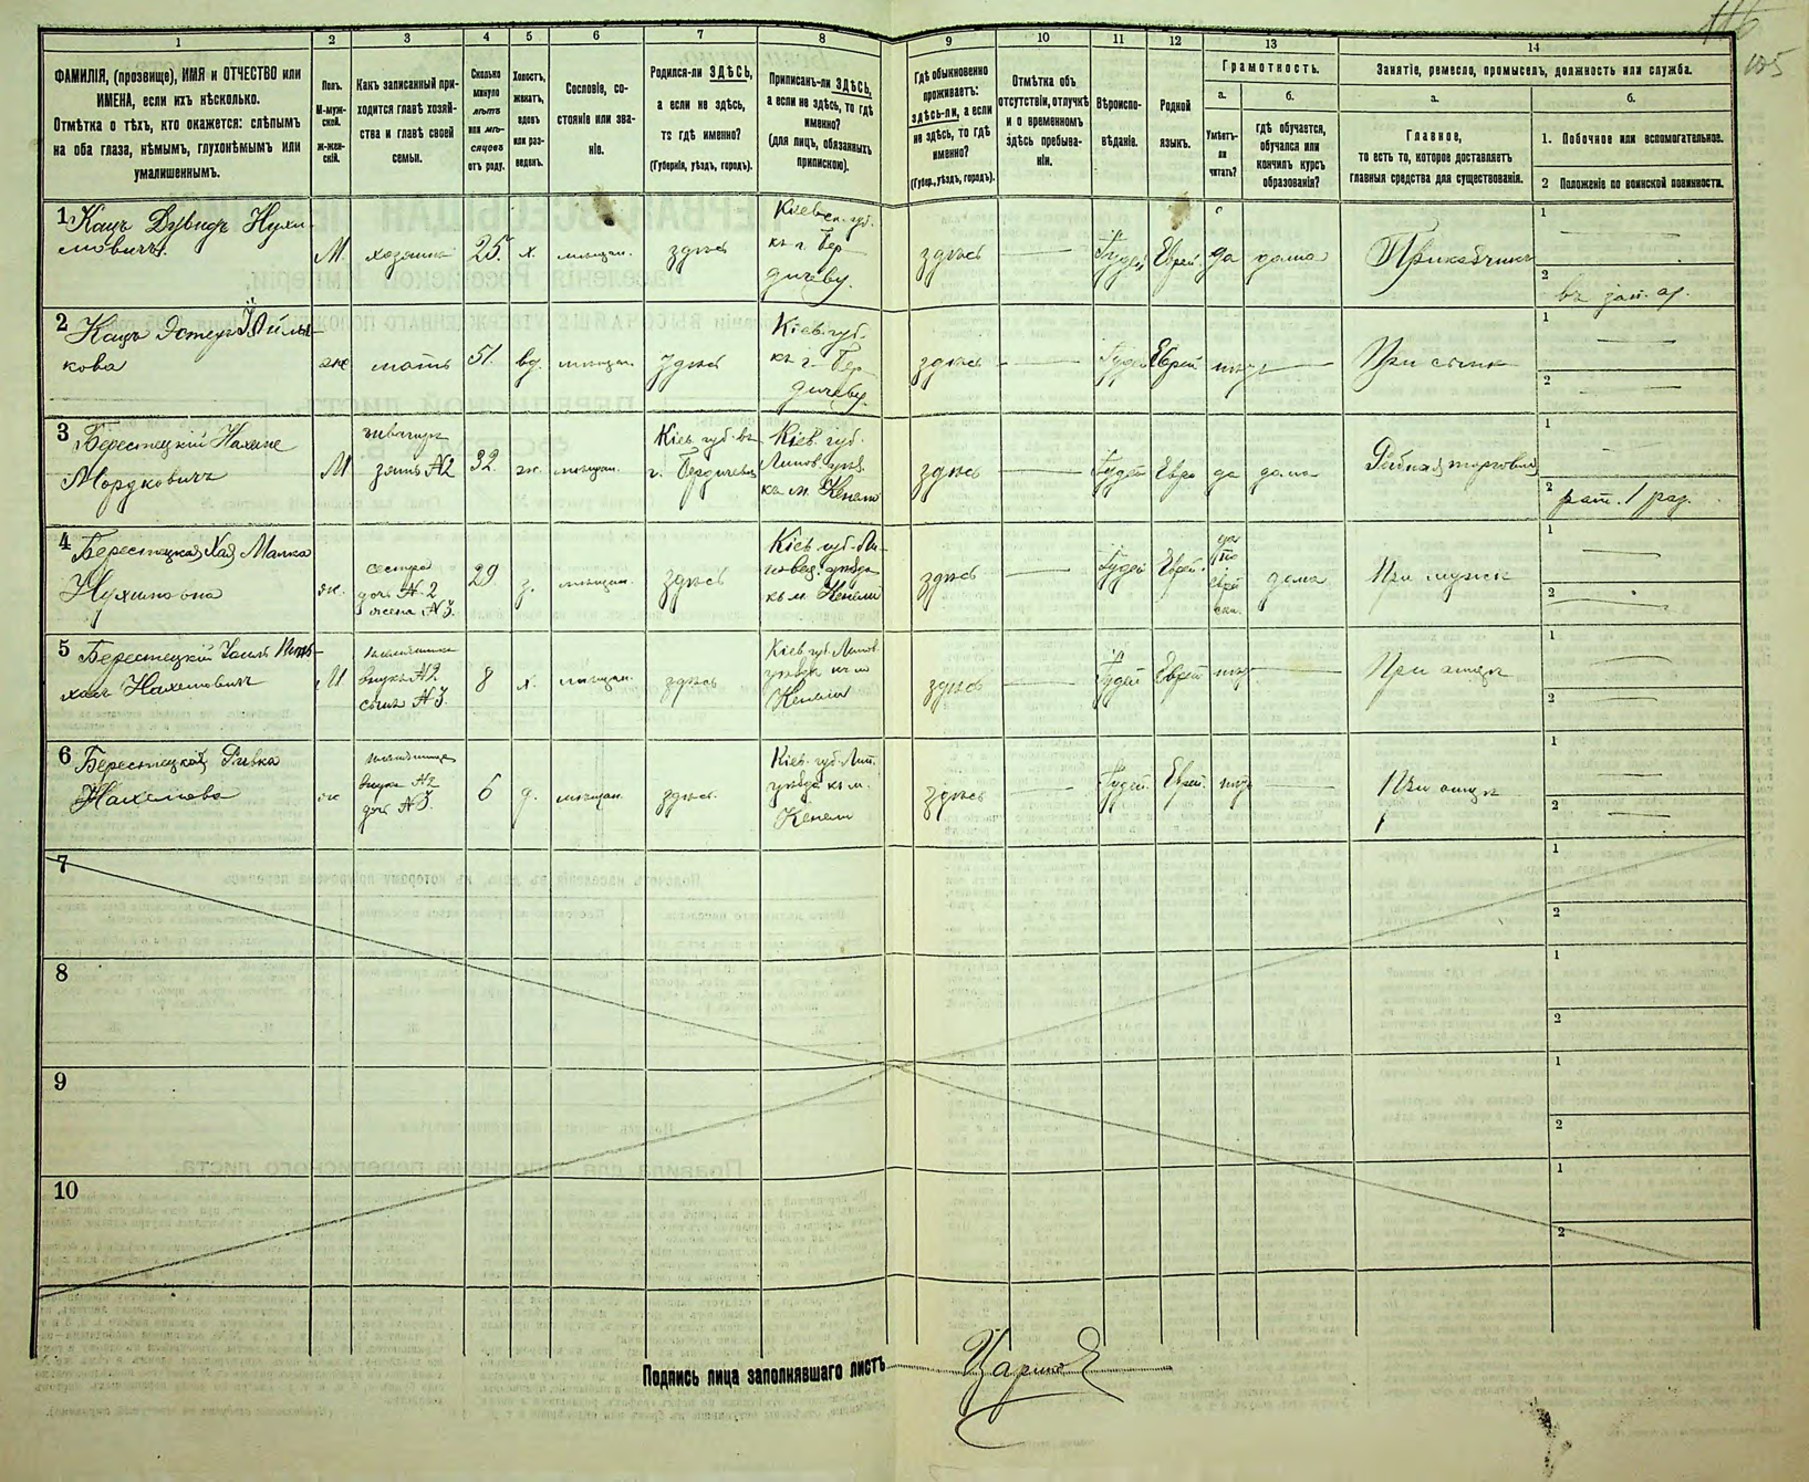 116
105
1
2
3
4
5
6
7
8
9
10
11
12
13
14
ФАМИЛІЯ, (прозвище), ИМЯ и ОТЧЕСТВО или
ИМЕНА, если ихъ нѣсколько.
Отмѣтка о тѣхъ, кто окажется: слѣпымъ
на оба глаза, нѣмымъ, глухонѣмымъ или
умалишеннымъ.
Полъ.
М-муж-
ской.
ж-жен-
скій.
Какъ записанный при-
ходится главѣ хозяй-
ства и главѣ своей
семьи.
Сколько
минуло
лѣтъ
или мѣ-
сяцевъ
отъ роду.
Холостъ,
женатъ,
вдовъ
или раз-
веденъ.
Сословіе, со-
стояніе или зва-
ніе.
Родился-ли ЗДѢСЬ,
а если не здѣсь,
то гдѣ именно?
(Губернія, уѣздъ, городъ).
Приписанъ-ли ЗДѢСЬ,
а если не здѣсь, то гдѣ
именно?
(для лицъ, обязанныхъ
припискою).
Гдѣ обыкновенно
проживаетъ:
здѣсь-ли, а если
не здѣсь, то гдѣ
именно?
(Губер., уѣздъ, городъ).
Отмѣтка объ
отсутствіи, отлучкѣ
и о временномъ
здѣсь пребыва-
ніи.
Вѣроиспо-
вѣданіе.
Родной
языкъ.
Грамотность.
а.
Умѣетъ-
ли
читать?
б.
гдѣ обучается,
обучался или
кончилъ курсъ
образованія?
Занятіе, ремесло, промыселъ, должность или служба.
а.
Главное,
то есть то, которое доставляетъ
главныя средства для существованія.
б.
1. Побочное или вспомогательное.
2 Положеніе по воинской повинности.
1 Кацъ Дувидъ Нухи-
мовичъ
М.
хозяинъ
25.
х.
мѣщан.
здѣсь
Кіевск. губ.
къ г. Бер-
дичеву.
здѣсь
—
Іудей
Еврей
да
дома
Прикащикъ
1
2
въ зап. ар.
2 Кацъ Эстеръ
кова
же
мать
51.
вд.
мѣщан.
здѣсь
Кіев. губ.
къ г. Бер-
дичеву.
здѣсь
—
Іудей
Еврей
нѣтъ
—
При сынѣ
1
2
3 Берестецкій Нахмне
Мордковичъ
М
зять №2
32.
ж.
мѣщан.
Кіев. губ. въ
г. Бердичевѣ
Кіев. губ.
Липов. уѣз.
къ м.
здѣсь
—
Іудей
Евре
да
дома
Рыбная торговля
1
2
рат. 1 раз.
4 Берестецкая Хая Малка
Нухимовна
ж.
сестра
дочь №. 2
жена №3.
29
з.
мѣщан.
здѣсь
Кіев. губ. Ли-
повец. уѣзда
къ м.
здѣсь
—
Іудей
Еврей.
да
по
еврей
ски.
дома
При мужѣ
1
2
5 Берестецкій
Нахмновичъ
М
племянникъ
внукъ №2
сынъ №3.
8
х.
мѣщан.
здѣсь
Кіев. губ. Липов.
уѣзда къ м
здѣсь
—
Іудей
Еврей
нѣт
—
При отцѣ
1
2
6 Берестецкая Ривка
Нахмнова
ж
племянница
внука №2
дочь №3.
6
д.
мѣщан.
здѣсь.
Кіев. губ. Лип.
уѣзда къ м.
здѣсь
—
Іудей.
Еврей.
нѣтъ
—
При отцѣ
1
2
7
1
2
8
1
2
9
1
2
10
1
2
Подпись лица заполнявшаго листъ